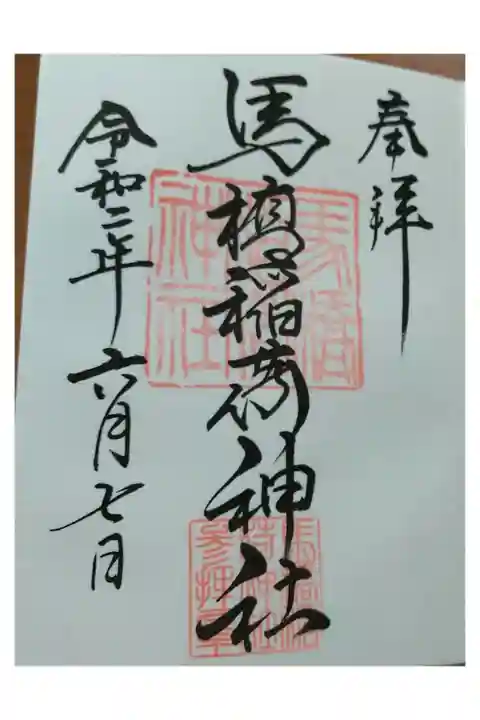 奉拝
馬橋稲荷神社
令和二年六月七日